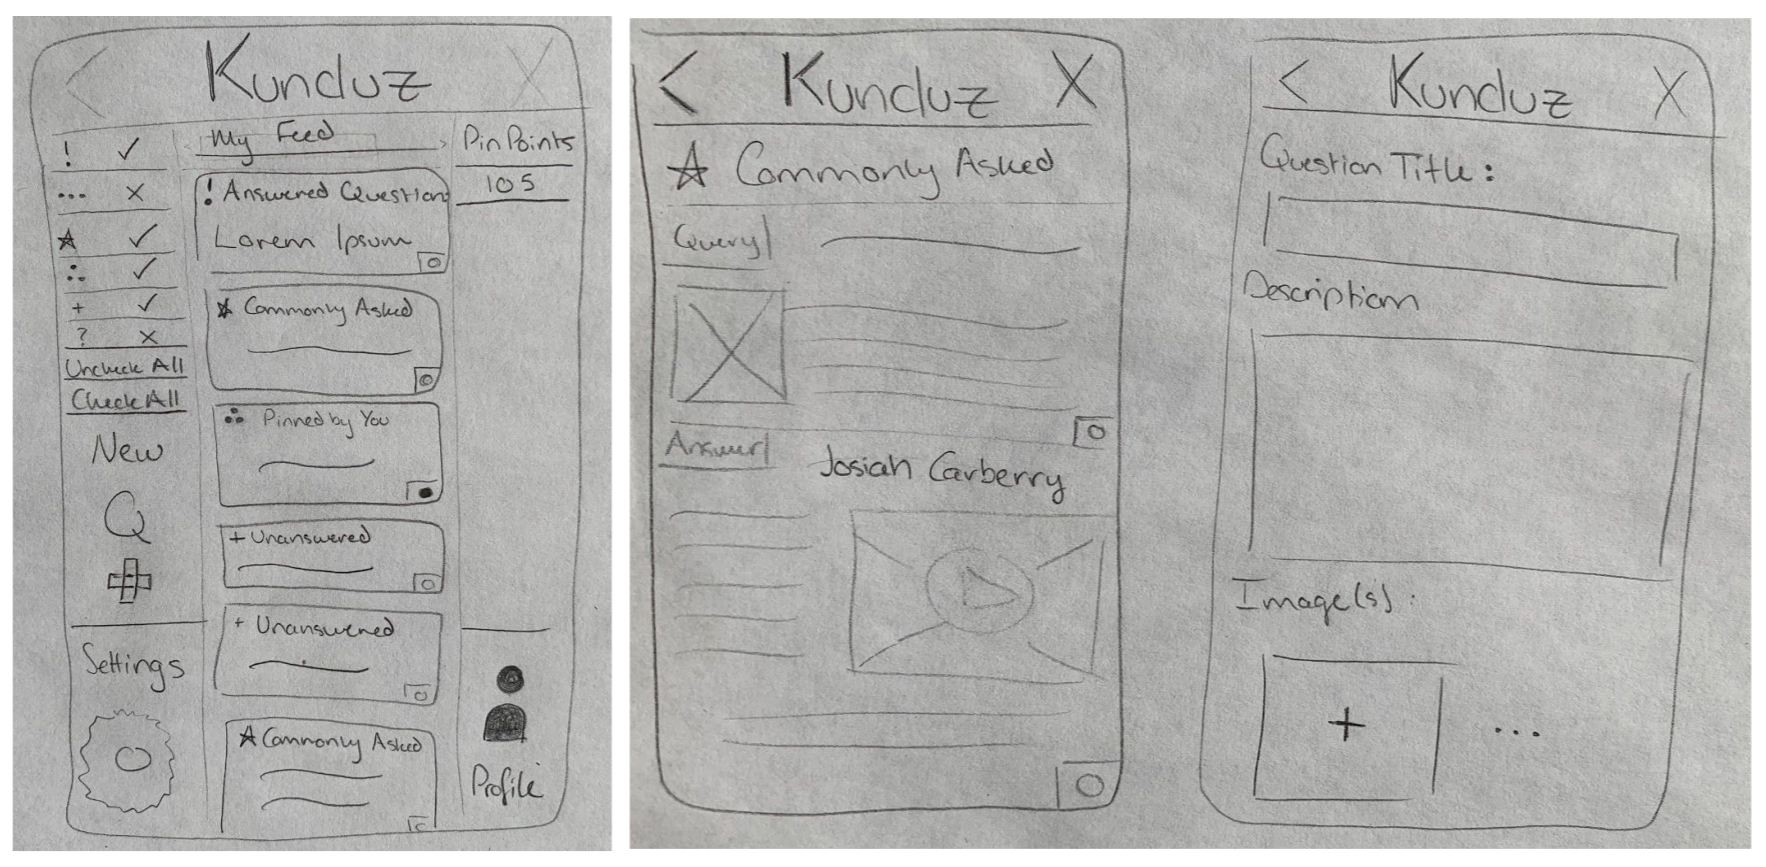 Kunduz
! ✓
... X
☆ ✓
∴ ✓
+ ✓
? X
Uncheck All
Check All
New
Q
Settings
My Feed
! Answered Question
Lorem Ipsum
☆ Commonly Asked
∴ Pinned by You
+ Unanswered
+ Unanswered
☆ Commonly Asked
PinPoints
105
Profile
< Kunduz X
☆ Commonly Asked
Query
Answer
Josiah Carberry
< Kunduz X
Question Title:
Description
Image(s):
+ ...